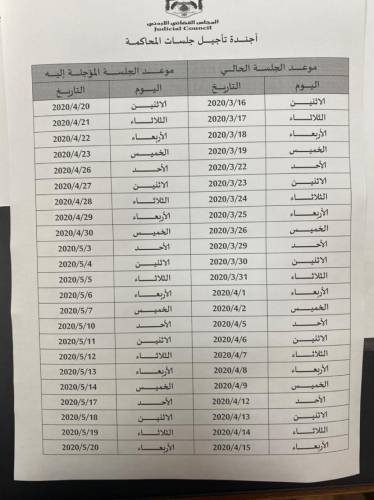 المجلس القضائي الأردني
Judicial Council
أجندة تأجيل جلسات المحاكمة
موعد الجلسة الحالي موعد الجلسة المؤجلة إليه
اليوم التاريخ اليوم التاريخ
الاثنين 2020/3/16 الاثنين 2020/4/20
الثلاثاء 2020/3/17 الثلاثاء 2020/4/21
الأربعاء 2020/3/18 الأربعاء 2020/4/22
الخميس 2020/3/19 الخميس 2020/4/23
الأحد 2020/3/22 الأحد 2020/4/26
الاثنين 2020/3/23 الاثنين 2020/4/27
الثلاثاء 2020/3/24 الثلاثاء 2020/4/28
الأربعاء 2020/3/25 الأربعاء 2020/4/29
الخميس 2020/3/26 الخميس 2020/4/30
الأحد 2020/3/29 الأحد 2020/5/3
الاثنين 2020/3/30 الاثنين 2020/5/4
الثلاثاء 2020/3/31 الثلاثاء 2020/5/5
الأربعاء 2020/4/1 الأربعاء 2020/5/6
الخميس 2020/4/2 الخميس 2020/5/7
الأحد 2020/4/5 الأحد 2020/5/10
الاثنين 2020/4/6 الاثنين 2020/5/11
الثلاثاء 2020/4/7 الثلاثاء 2020/5/12
الأربعاء 2020/4/8 الأربعاء 2020/5/13
الخميس 2020/4/9 الخميس 2020/5/14
الأحد 2020/4/12 الأحد 2020/5/17
الاثنين 2020/4/13 الاثنين 2020/5/18
الثلاثاء 2020/4/14 الثلاثاء 2020/5/19
الأربعاء 2020/4/15 الأربعاء 2020/5/20